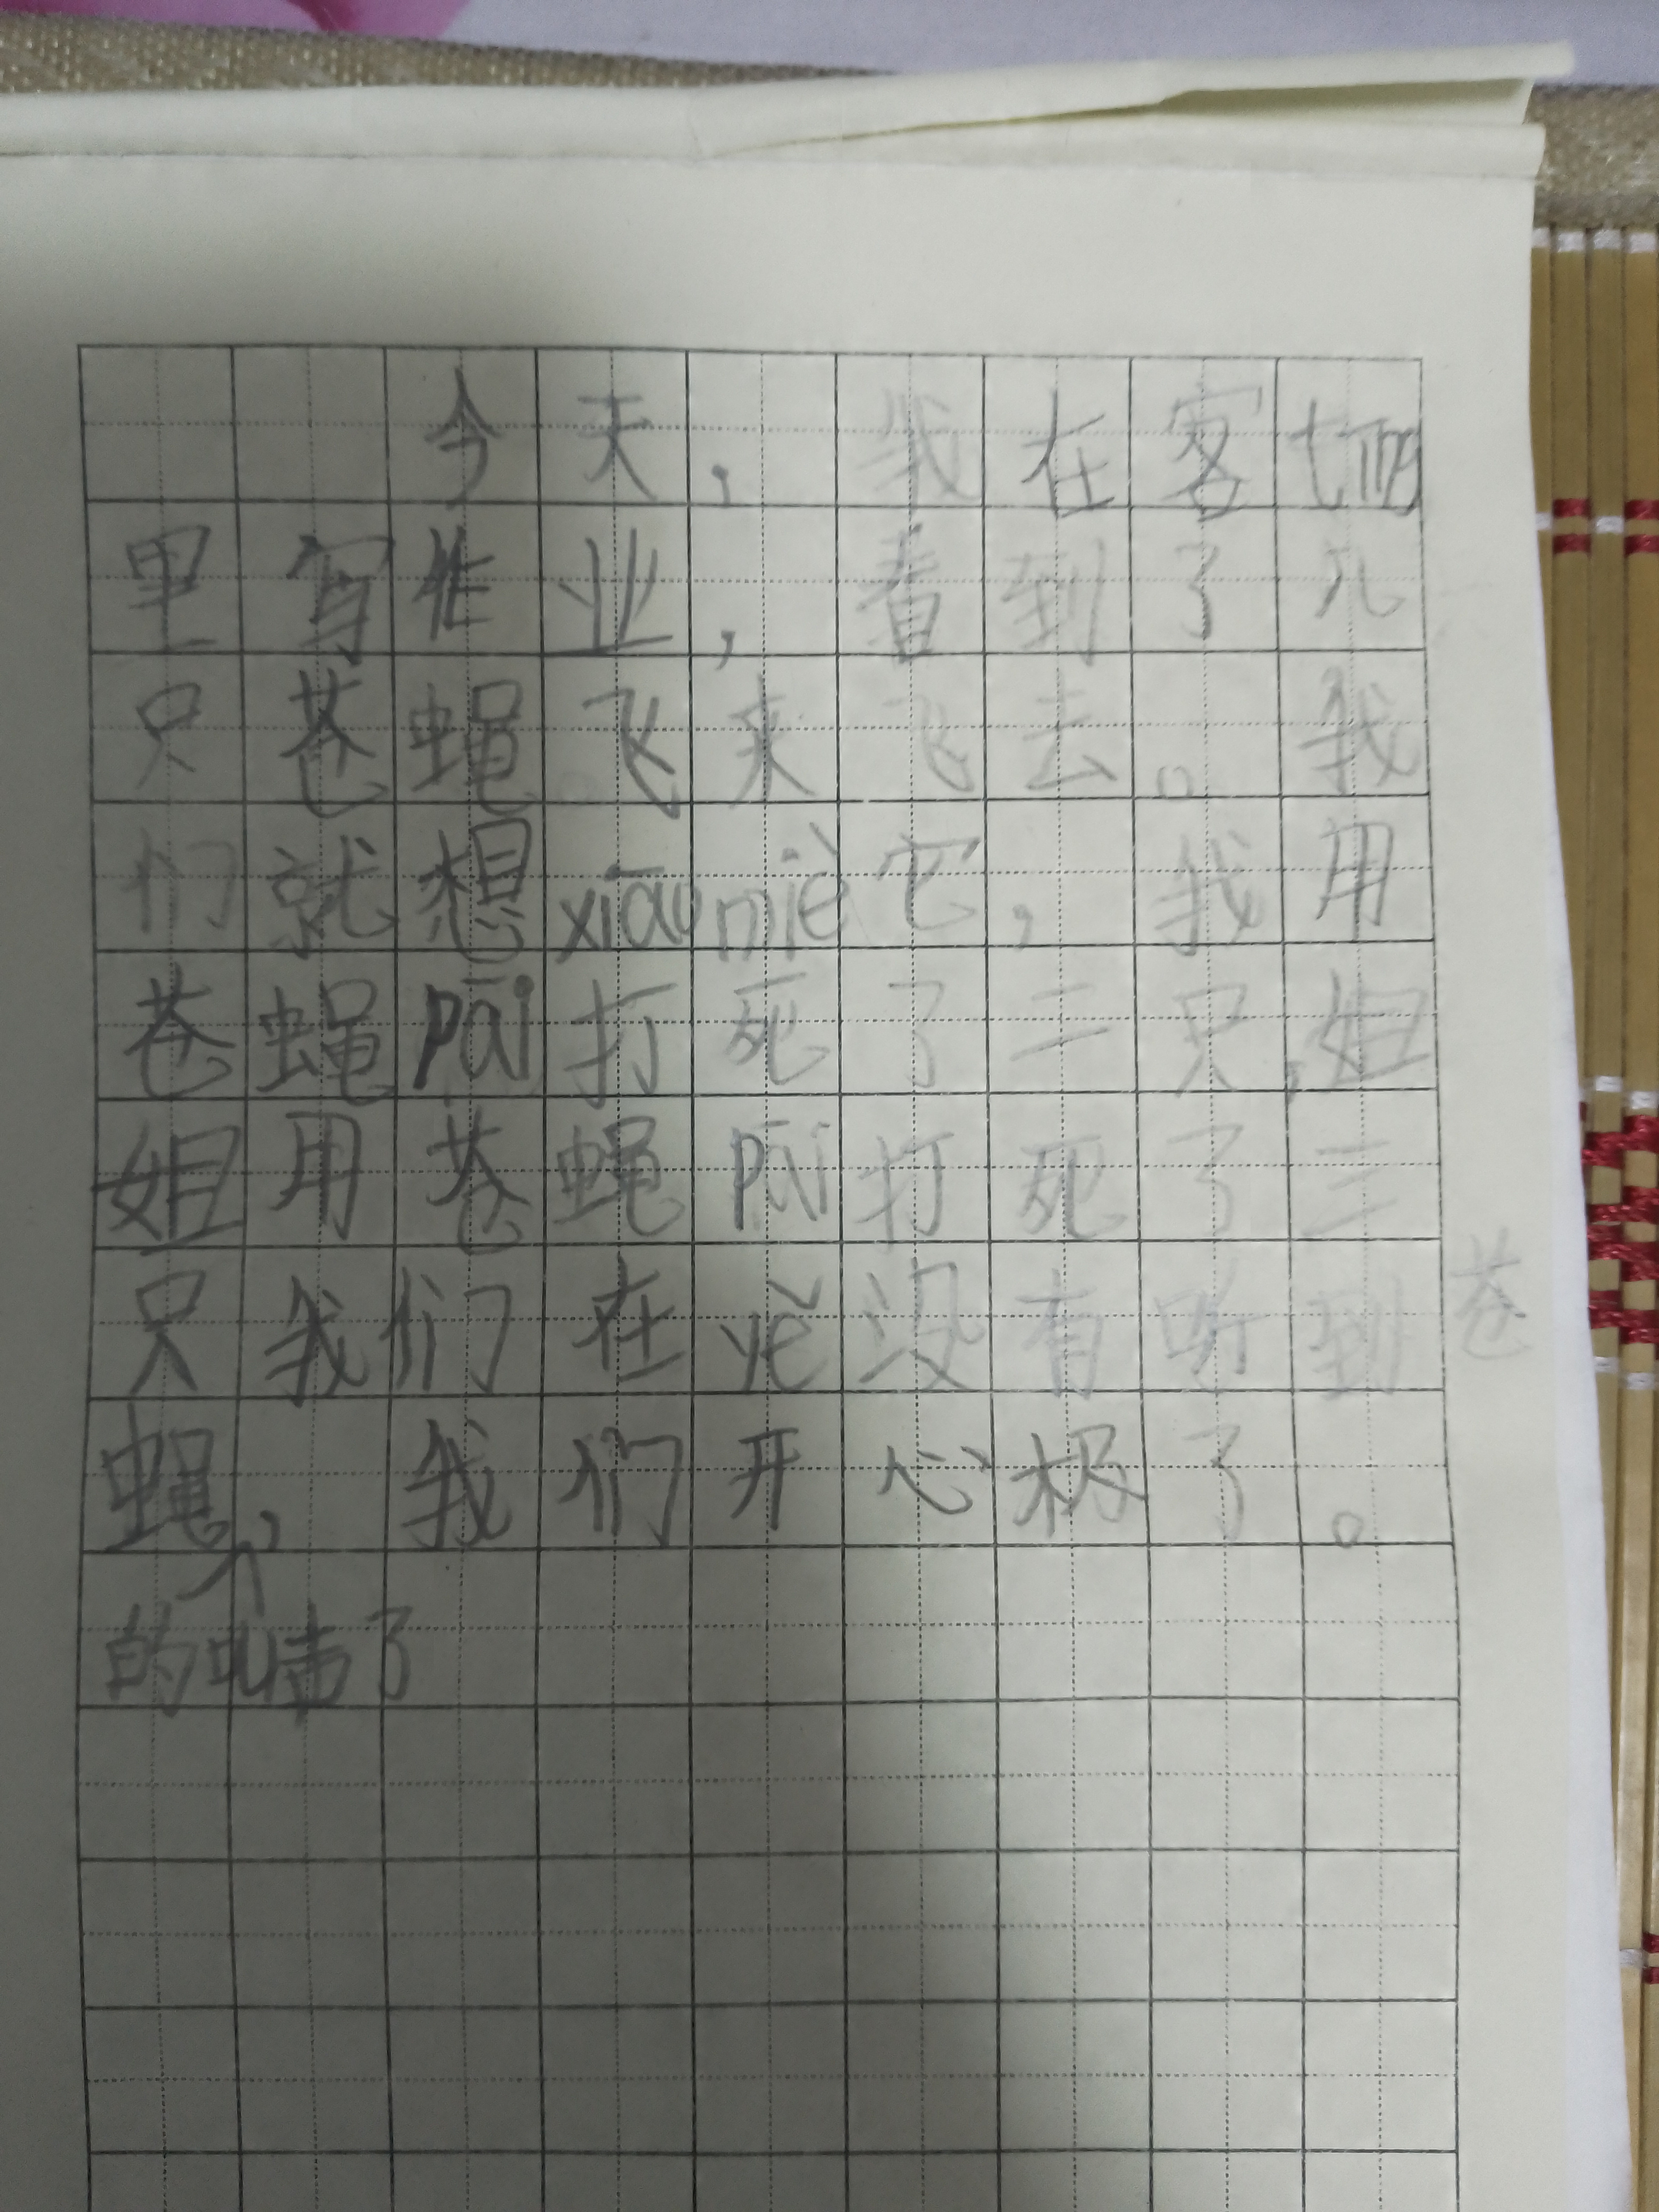 今天，我在客
里写作业，看到了几
只苍蝇飞来飞去。我
们就想xiāomiè它，我用
苍蝇pāi打死了二只，姐
姐用苍蝇pāi打死了三
只我们在yě没有听到苍
蝇，我们开心极了。
的叫声了